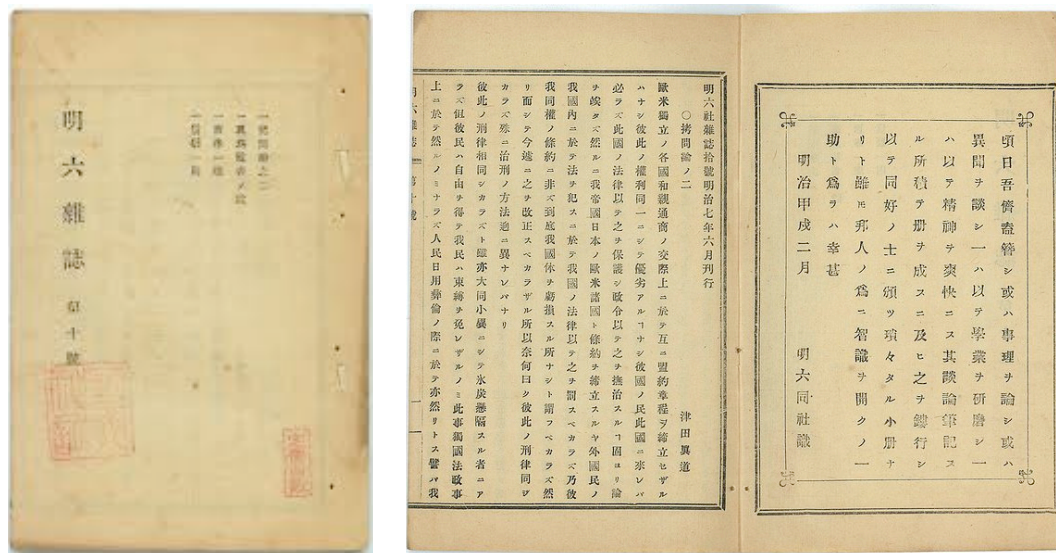 明六雑誌 第十號
一拷問論之二
頃日吾儕盍簪シ或ハ事理ヲ論シ或ハ
異聞ヲ談シ一ハ以テ學業ヲ研磨シ一
ハ以テ精神ヲ爽快ニス其談論筆記ス
ル所積テ册ヲ成スニ及ヒ之ヲ鏤行シ
以テ同好ノ士ニ頒ツ瑣々タル小册ナ
リト雖モ邦人ノ爲ニ智識ヲ開クノ一
助ト爲ラハ幸甚
明治甲戌二月
明六同社識
明六社雜誌拾號明治七年六月刊行
〇拷問論ノ二
津田眞道
歐米獨立ノ各國和親通商ノ交際上ニ於テ互ニ盟約章程ヲ締立セザル
ハナシ彼此ノ權利同一ニシテ優劣アルヿナシ彼國ノ民此國ニ來レバ
必ラズ此國ノ法律以テ之ヲ保護シ政令以テ之ヲ撫治スルヿ固ヨリ論
ヲ俟タズ然ルニ我帝國日本ノ歐米諸國ト條約ヲ締立スルヤ外國民ノ
我國内ニ於テ法ヲ犯スニ於テ我國ノ法律以テ之ヲ罰スベカラズ乃彼
我同權ノ條約ニ非ズ到底我國体ヲ虧損スル所ナシト謂フベカラズ然
リ而シテ今遽ニ之ヲ改正スベカラザル所以奈何曰ク彼此ノ刑律同ジ
カラズ殊ニ治刑ノ方法逈ニ異ナレバナリ
彼此ノ刑律相同シカラズト雖亦大同小異ニシテ氷炭懸隔スル者ニア
ラズ但彼民ハ自由ヲ得テ我民ハ束縛ヲ免レザルノミ此事獨國法政事
上ニ於テ然ルノミナラズ人民日用彝倫ノ際ニ於テ亦然リトス譬バ我